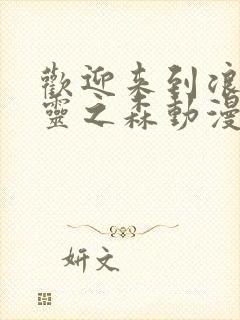 歡迎来到浪
靈之森動漫
妍文